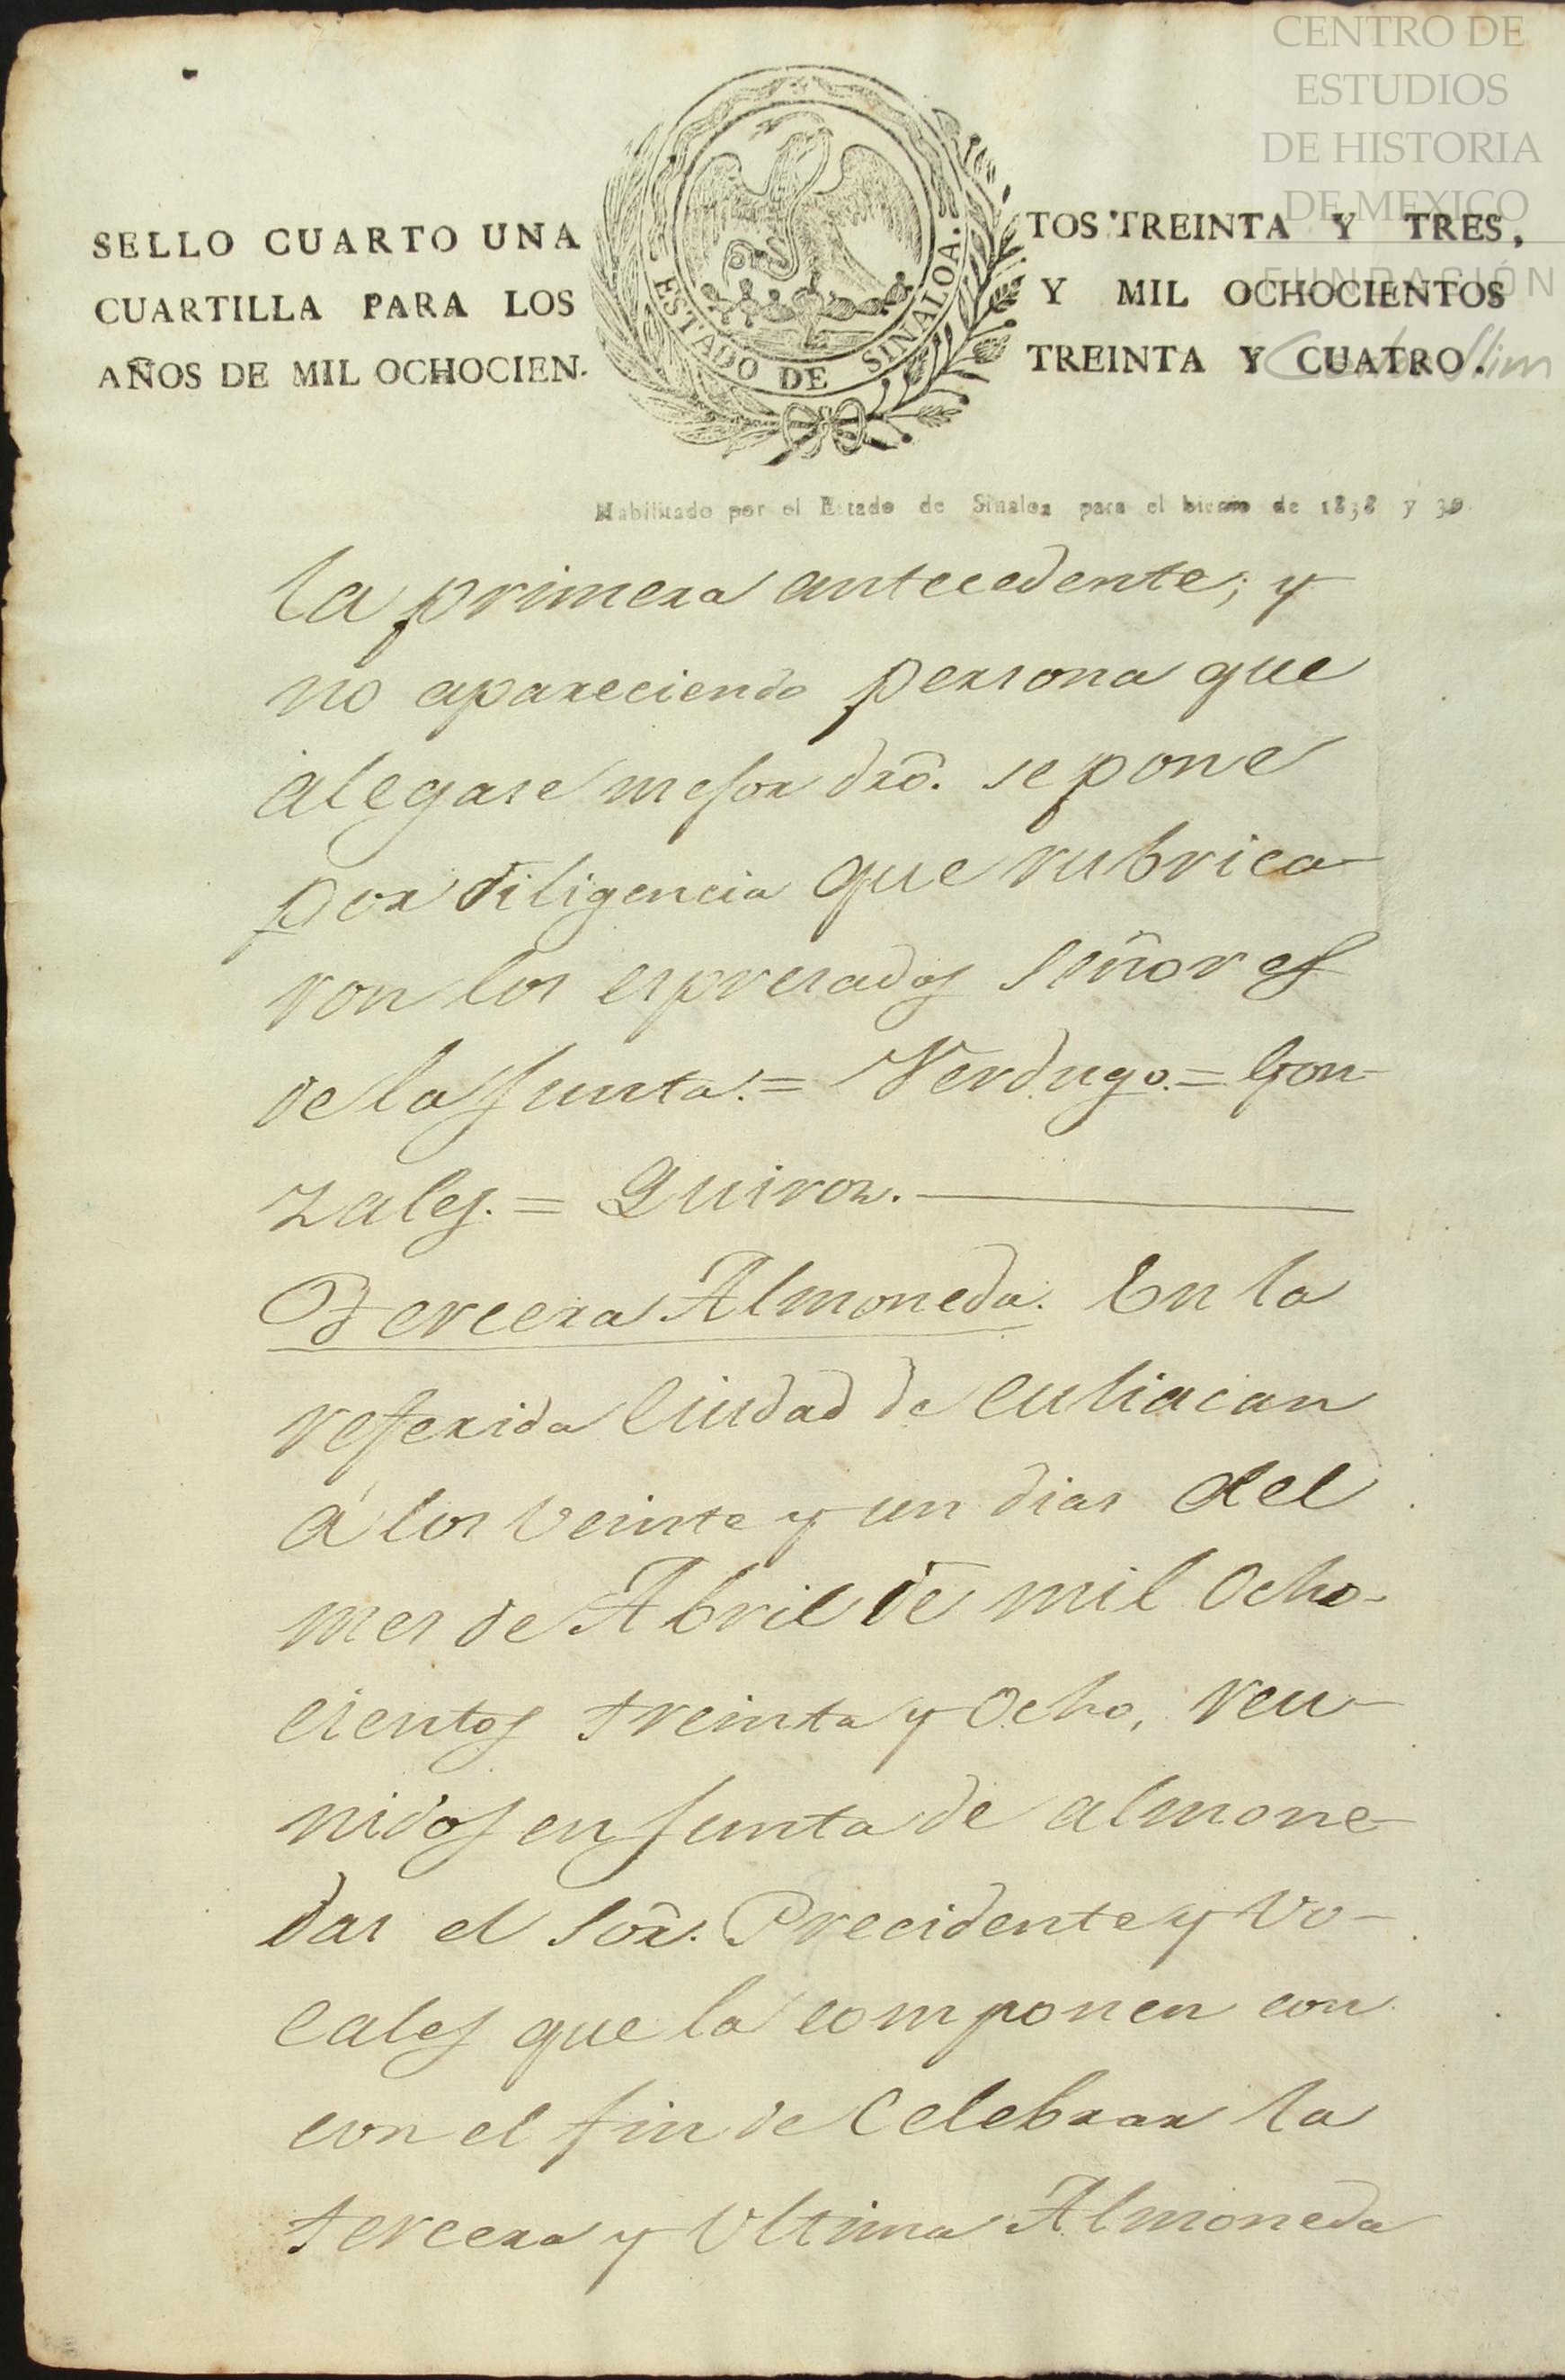 CENTRO DE
ESTUDIOS
DE HISTORIA
DE MEXICO
FUNDACIÓN
Carlos Slim
SELLO CUARTO UNA
CUARTILLA PARA LOS
AÑOS DE MIL OCHOCIEN-
ESTADO DE SINALOA.
TOS TREINTA Y TRES,
Y MIL OCHOCIENTOS
TREINTA Y CUATRO.
Habilitado por el Estado de Sinaloa para el bienio de 1838 y 39.
la primera antecedente; y
no apareciendo persona que
alegase mejor dro. se pone
por diligencia que rubrica-
ron los espresados señores
de la Junta.= Verdugo.= Gon-
zales.= Quiroz.
Tercera Almoneda. En la
referida Ciudad de Culiacan
á los veinte y un dias del
mes de Abril de mil ocho-
cientos treinta y ocho, reu-
nidos en Junta de almone-
das el Sor. Precidente y Vo-
cales que la componen con
con el fin de Celebrar la
tercera y Ultima Almoneda